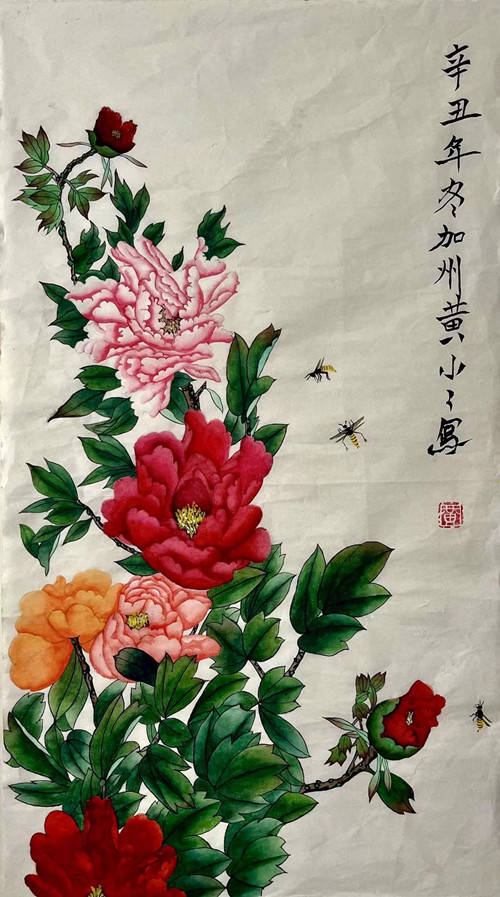 辛丑年冬加州黄小〻寫
黄